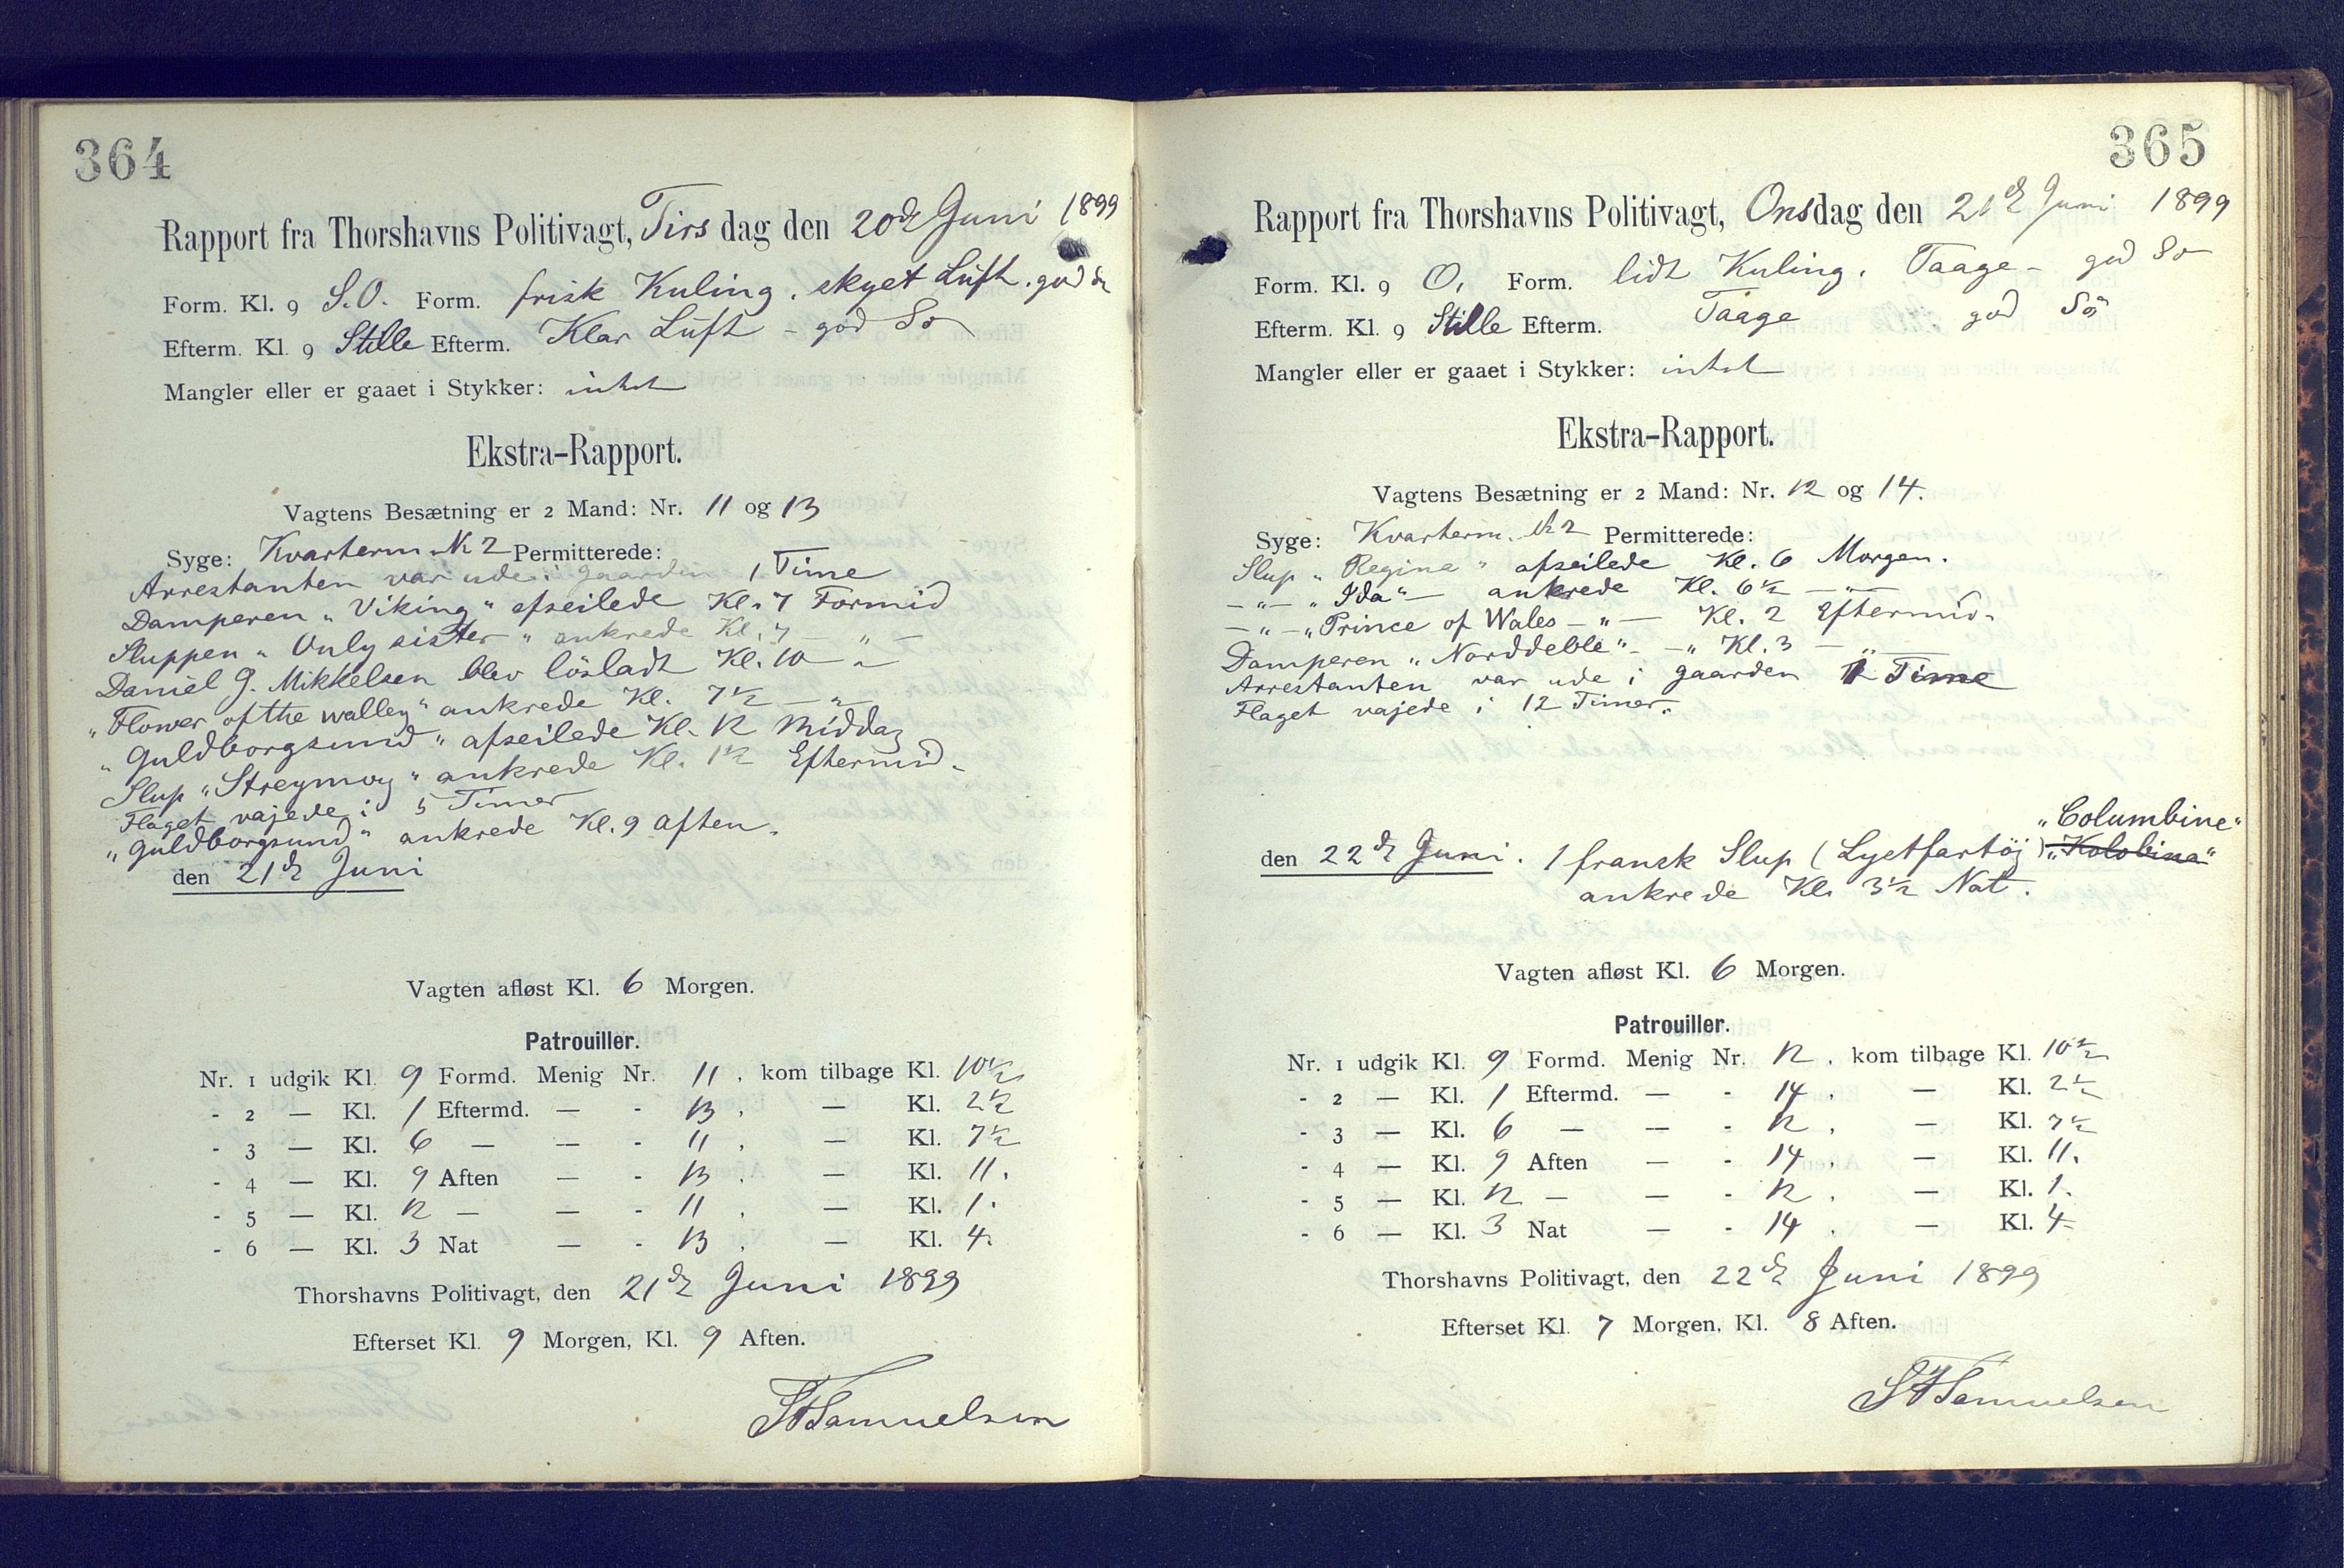 364
Rapport fra Thorshavns Politivagt, Tirsdag den 20de Juni 1899
Form. Kl. 9 S.O. Form. frisk Kuling. skyet Luft. god Sø
Efterm. Kl. 9 Stille Efterm. Klar Luft - god Sø
Mangler eller er gaaet i Stykker: intet
Ekstra-Rapport.
Vagtens Besætning er 2 Mand: Nr. 11 og 13
Syge: Kvarterm. N 2 Permitterede:
Arrestanten var ude i gaarden 1 Time
Damperen "Viking" afseilede Kl. 7 Formid
Sluppen "Only sister" ankrede Kl. 7 - " -
Daniel J. Mikkelsen blev lösladt Kl. 10 - "
"Flower of the walley" ankrede Kl. 7½ - " -
"Guldborgsund" afseilede Kl. 12 Middag
Slup "Streymoy" ankrede Kl. 1½ Eftermid.
Flaget vajede i 5 Timer
"Guldborgsund" ankrede Kl. 9 Aften.
den 21de Juni
Vagten afløst Kl. 6 Morgen.
Patrouiller.
Nr. 1 udgik Kl. 9 Formd. Menig Nr. 11, kom tilbage Kl. 10½
- 2 — Kl. 1 Eftermd. — - 13, — Kl. 2½
- 3 — Kl. 6 — — - 11, — Kl. 7½
- 4 — Kl. 9 Aften — - 13, — Kl. 11.
- 5 — Kl. 12 — — - 11, — Kl. 1.
- 6 — Kl. 3 Nat — - 13, — Kl. 4.
Thorshavns Politivagt, den 21de Juni 1899
Efterset Kl. 9 Morgen, Kl. 9 Aften.
Samuelsen
365
Rapport fra Thorshavns Politivagt, Onsdag den 21de Juni 1899
Form. Kl. 9 O. Form. lidt Kuling. Taage - god Sø
Efterm. Kl. 9 Stille Efterm. Taage god Sö
Mangler eller er gaaet i Stykker: intet
Ekstra-Rapport.
Vagtens Besætning er 2 Mand: Nr. 12 og 14.
Syge: Kvarterm. N 2 Permitterede:
Slup "Regina" afseilede Kl. 6 Morgen.
- " - "Ida" - ankrede Kl. 6½ - " -
- " - "Prince of Wales - " - Kl. 2 Eftermid.
Damperen "Norddeble" - - " Kl. 3 - " -
Arrestanten var ude i gaarden 1 Time
Flaget vajede i 12 Timer.
"Columbine"
den 22de Juni. 1 fransk Slup (Lystfartöj) "Kolobina"
ankrede Kl. 3½ Nat.
Vagten afløst Kl. 6 Morgen.
Patrouiller.
Nr. 1 udgik Kl. 9 Formd. Menig Nr. 12, kom tilbage Kl. 10½
- 2 — Kl. 1 Eftermd. — - 14, — Kl. 2½
- 3 — Kl. 6 — — - 12, — Kl. 7½
- 4 — Kl. 9 Aften — - 14, — Kl. 11.
- 5 — Kl. 12 — — - 12, — Kl. 1.
- 6 — Kl. 3 Nat — - 14, — Kl. 4-
Thorshavns Politivagt, den 22de Juni 1899
Efterset Kl. 7 Morgen, Kl. 8 Aften.
Samuelsen